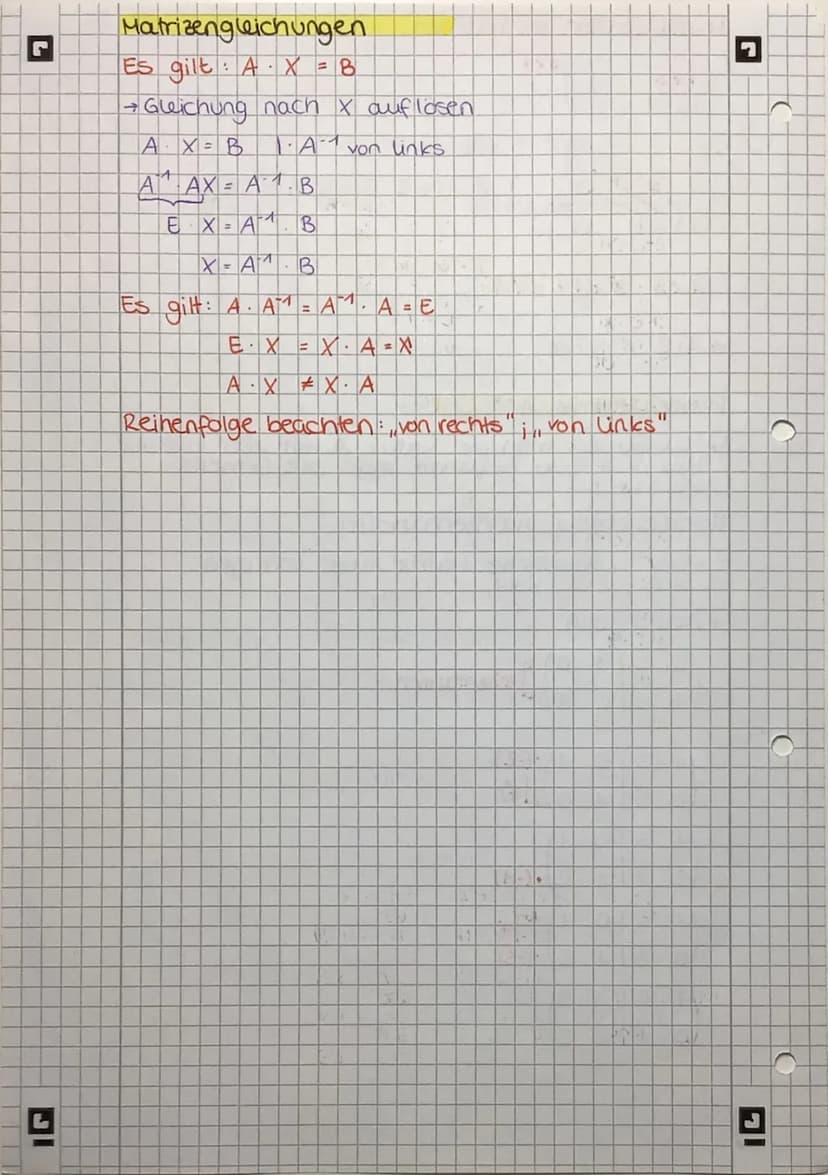 Matrizengleichungen
Es gilt: A · X = B
→ Gleichung nach X auflösen
A · X = B | · A⁻¹ von links
A⁻¹ · AX = A⁻¹ · B
E · X = A⁻¹ · B
X = A⁻¹ · B
Es gilt: A · A⁻¹ = A⁻¹ · A = E
E · X = X · A = X
A · X ≠ X · A
Reihenfolge beachten: „von rechts"; „von links"